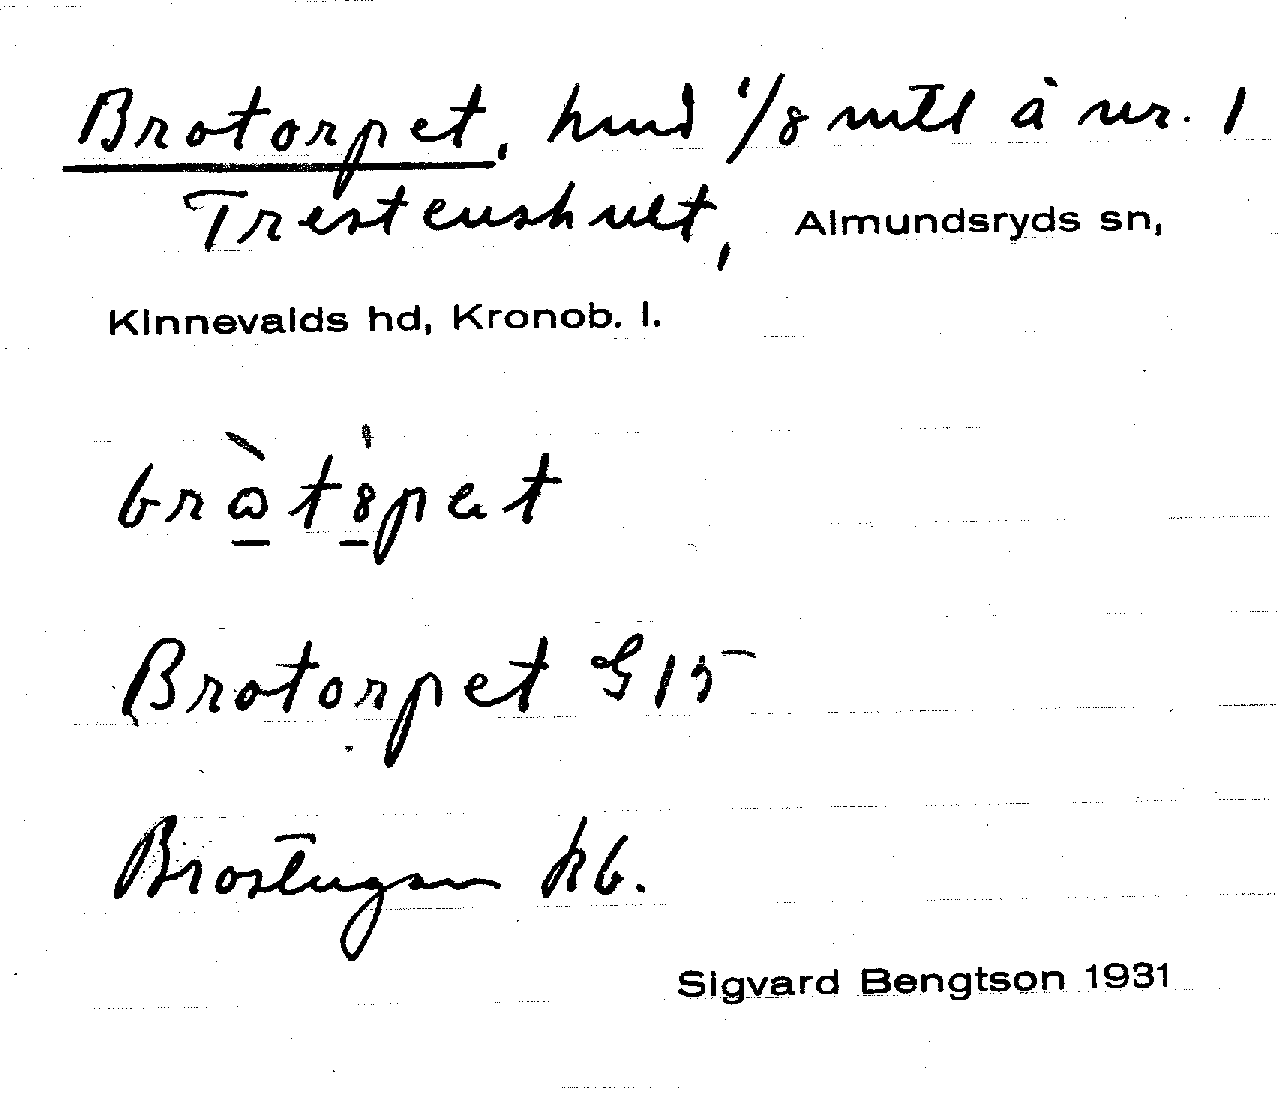 Brotorpet, hmd 1/8 mtl å nr. 1
Trestenshult, Almundsryds sn,
Kinnevalds hd, Kronob. l.
Brotorpet G 15
Brostugan kb.
Sigvard Bengtson 1931